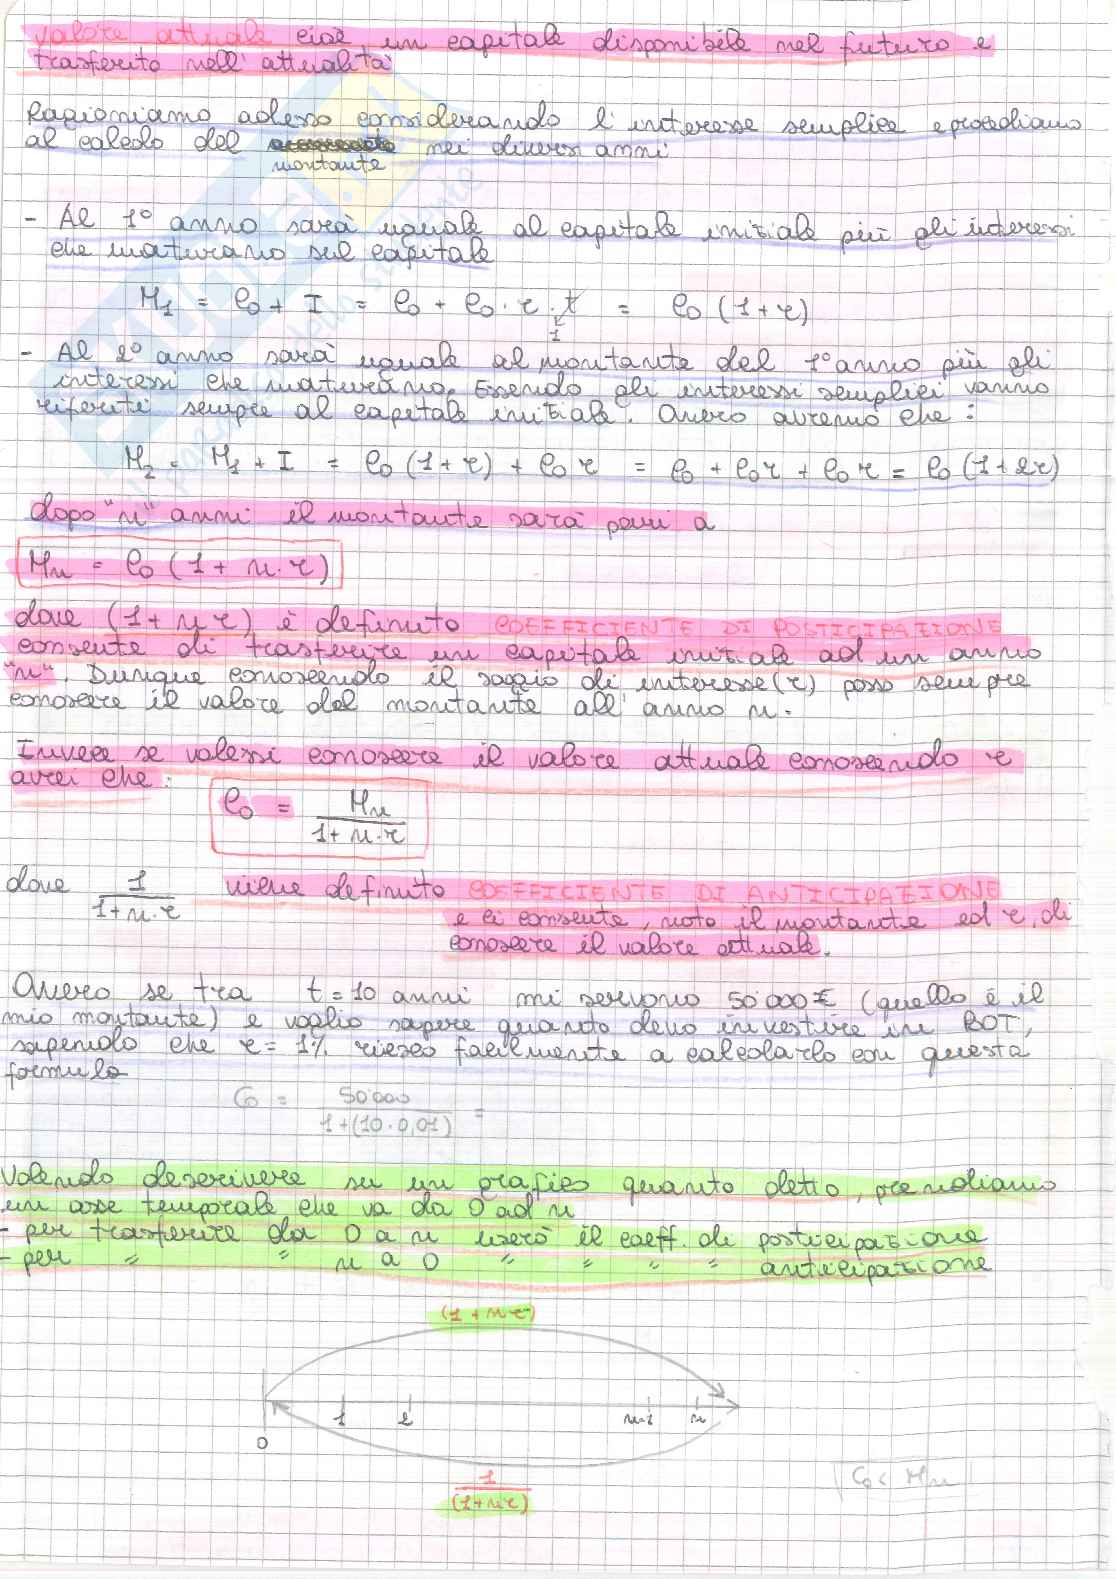 valore attuale cioè un capitale disponibile nel futuro e
trasferito nell'attualità
Ragioniamo adesso considerando l'interesse semplice e procediamo
al calcolo del montante nei diversi anni
- Al 1° anno sarà uguale al capitale iniziale più gli interessi
che maturano sul capitale
M1 = C0 + I = C0 + C0 · r · t = C0 (1 + r)
1
- Al 2° anno sarà uguale al montante del 1° anno più gli
interessi che maturano. Essendo gli interessi semplici vanno
riferiti sempre al capitale iniziale. Ovvero avremo che:
M2 = M1 + I = C0 (1 + r) + C0 r = C0 + C0 r + C0 r = C0 (1 + 2r)
dopo "n" anni il montante sarà pari a
Mn = C0 (1 + n · r)
dove (1 + n r) è definito COEFFICIENTE DI POSTICIPAZIONE
consente di trasferire un capitale iniziale ad un anno
"n". Dunque conoscendo il saggio di interesse (r) posso sempre
conoscere il valore del montante all'anno n.
Invece se volessi conoscere il valore attuale conoscendo r
avrei che:
C0 = Mn / 1 + n · r
dove 1 / 1 + n · r viene definito COEFFICIENTE DI ANTICIPAZIONE
e ci consente, noto il montante ed r, di
conoscere il valore attuale.
Ovvero se tra t = 10 anni mi servono 50'000 € (quello è il
mio montante) e voglio sapere quanto devo investire in BOT,
sapendo che r = 1% riesco facilmente a calcolarlo con questa
formula
C0 = 50'000 / 1 + (10 · 0,01) =
Volendo descrivere su un grafico quanto detto, prendiamo
un asse temporale che va da 0 ad n
- per trasferire da 0 a n userò il coeff. di posticipazione
- per " " n a 0 " " " " anticipazione
(1 + n r)
1 2 n-1 n
0
1 / (1 + n r)
C0 < Mn